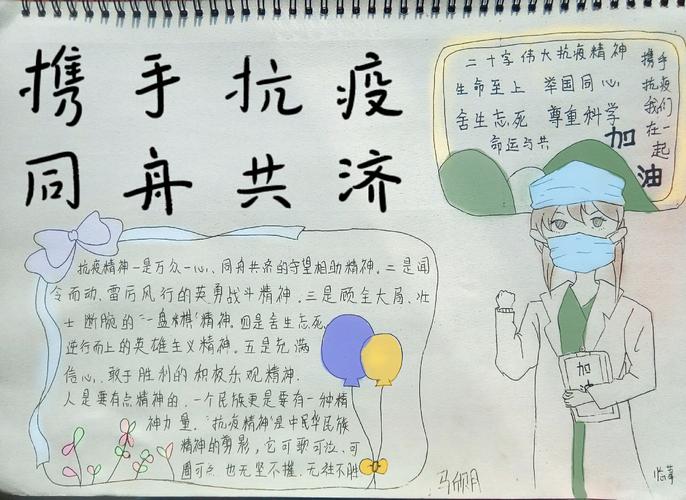 携手抗疫
同舟共济
二十字伟大抗疫精神
生命至上 举国同心
舍生忘死 尊重科学
命运与共
携手
抗疫
我们
在一起
加油
抗疫精神一是万众一心、同舟共济的守望相助精神。二是闻
令而动、雷厉风行的英勇战斗精神。三是顾全大局、壮
士断腕的"一盘棋"精神。四是舍生忘死、
逆行而上的英雄主义精神。五是充满
信心、敢于胜利的积极乐观精神.
人是要有点精神的,一个民族更是要有一种精
神力量,"抗疫精神"是中华民族
精神的剪影,它可歌可泣、可
圈可点 也无坚不摧、无往不胜
加
油
临摹